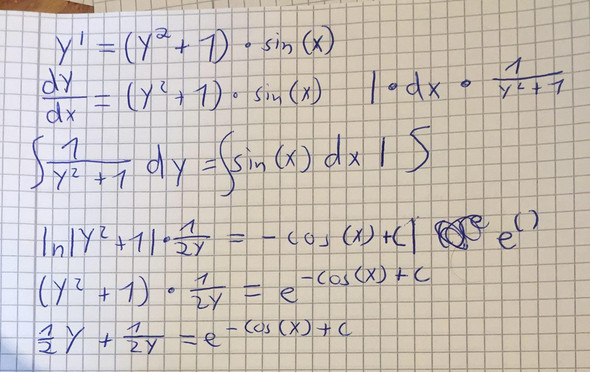 y' = (y² + 1) · sin(x)
dy/dx = (y² + 1) · sin(x) | · dx · 1/(y² + 1)
∫ 1/(y² + 1) dy = ∫ sin(x) dx | ∫
ln|y² + 1| · 1/(2y) = -cos(x) + c | e^()
(y² + 1) · 1/(2y) = e^(-cos(x) + c)
1/2 y + 1/(2y) = e^(-cos(x) + c)